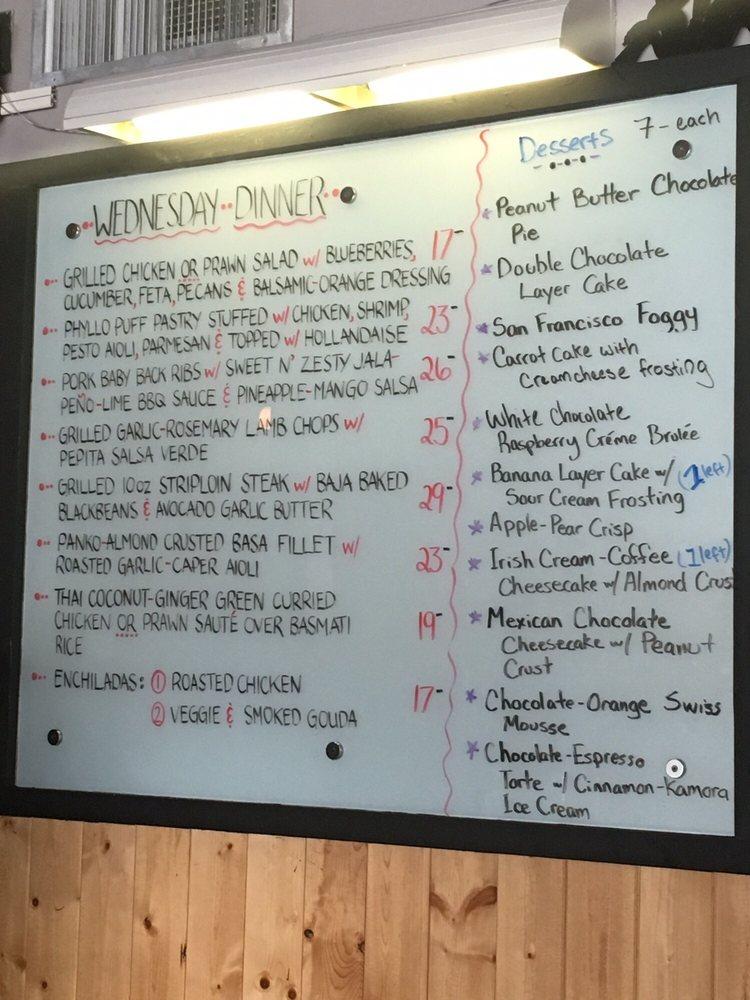 WEDNESDAY DINNER
GRILLED CHICKEN OR PRAWN SALAD w/ BLUEBERRIES, 17-
CUCUMBER, FETA, PECANS & BALSAMIC-ORANGE DRESSING
PHYLLO PUFF PASTRY STUFFED w/ CHICKEN, SHRIMP, 23-
PESTO AIOLI, PARMESAN & TOPPED w/ HOLLANDAISE
PORK BABY BACK RIBS w/ SWEET N' ZESTY JALA- 26-
PEÑO-LIME BBQ SAUCE & PINEAPPLE-MANGO SALSA
GRILLED GARLIC-ROSEMARY LAMB CHOPS w/ 25-
PEPITA SALSA VERDE
GRILLED 10oz STRIPLOIN STEAK w/ BAJA BAKED 29-
BLACKBEANS & AVOCADO GARLIC BUTTER
PANKO-ALMOND CRUSTED BASA FILLET w/ 23-
ROASTED GARLIC-CAPER AIOLI
THAI COCONUT-GINGER GREEN CURRIED
CHICKEN OR PRAWN SAUTÉ OVER BASMATI 19-
RICE
ENCHILADAS: 1 ROASTED CHICKEN 17-
2 VEGGIE & SMOKED GOUDA
Desserts 7- each
Peanut Butter Chocolate
Pie
Double Chocolate
Layer Cake
San Francisco Foggy
Carrot Cake with
Creamcheese frosting
White Chocolate
Raspberry Créme Brulée
Banana Layer Cake w/ (1 left)
Sour Cream Frosting
Apple-Pear Crisp
Irish Cream-Coffee (1 left)
Cheesecake w/ Almond Crus
Mexican Chocolate
Cheesecake w/ Peanut
Crust
Chocolate-Orange Swiss
Mousse
Chocolate-Espresso
Torte w/ Cinnamon-Kamora
Ice Cream